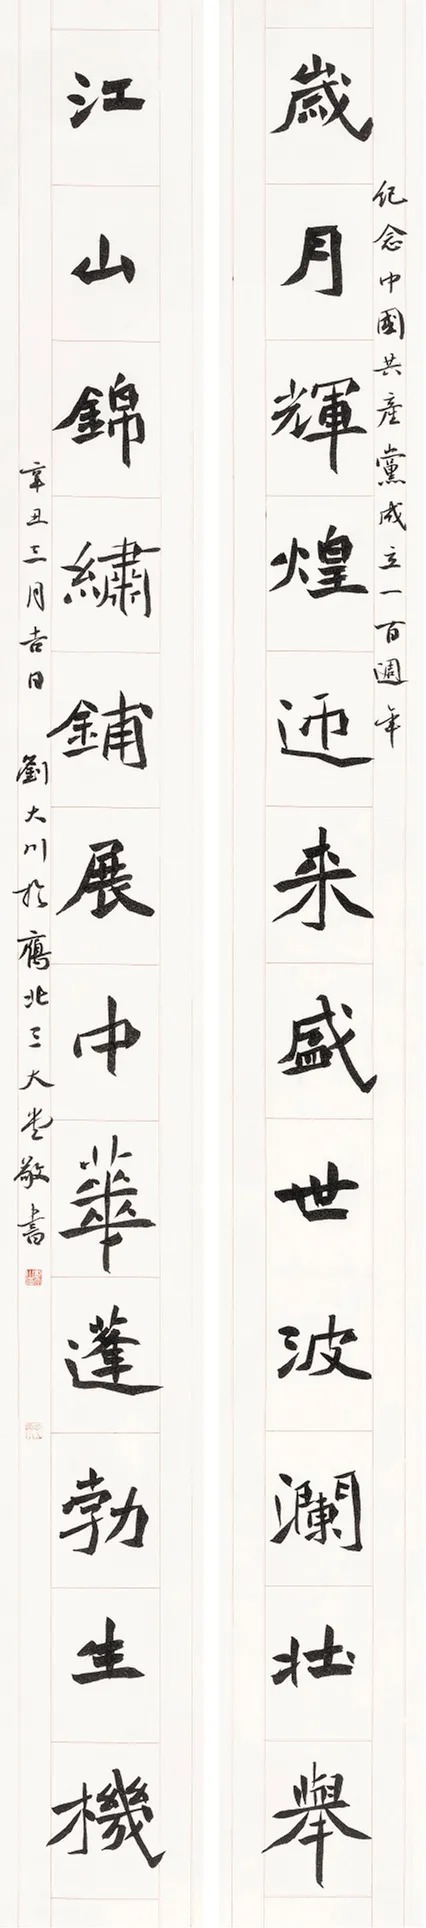 紀念中國共產黨成立一百週年
歲月輝煌迎来盛世波瀾壯舉
江山錦繡鋪展中華蓬勃生機
辛丑三月吉日 劉大川於鴈北三大堂敬書